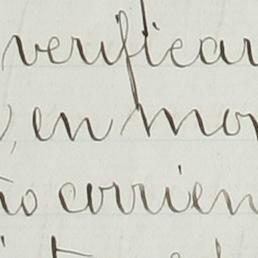 verificar
, en mo
to corrien